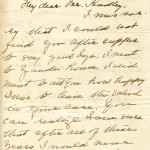 My dear Mr. Hadley,
I was sor-
ry that I could not
find you after supper
to say good bye. I went
to
want to tell you how happy
I was to
in your care. You
can realize I am sure
that after all of these
years I would have